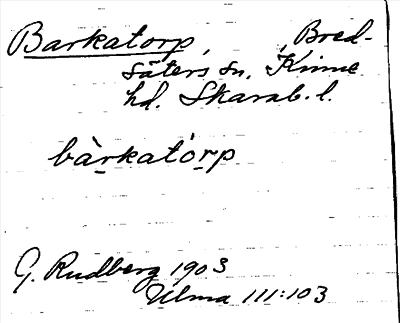 Barkatorp, Bred-
säters sn, Kinne
hd. Skarab. l.
bàrkatórp
G. Rudberg 1903
Ulma 111:103